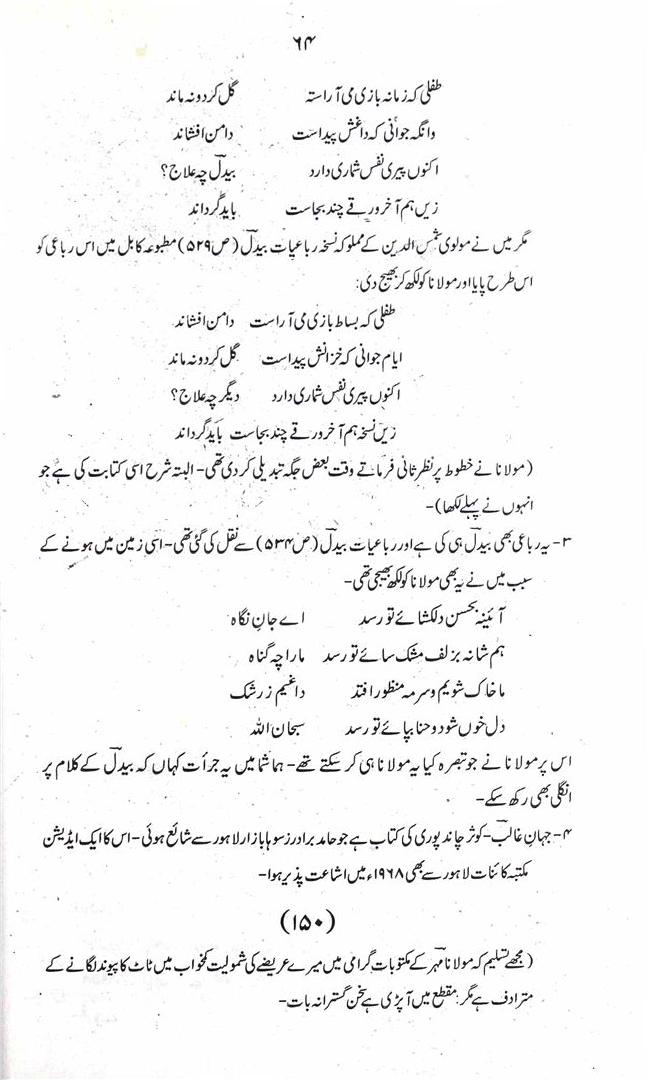 ۶۴
طفلی کہ زمانہ بازی می آراستہ گل کرد و نہ ماند
وانگہ جوانی کہ داغش پیداست دامن افشاند
اکنوں پیری نفس شماری دارد بیدلؔ چہ علاج؟
زیں ہم آخر ورقے چند بجاست باید گرداند
مگر میں نے مولوی شمس الدین کے مملوکہ نسخہ رباعیات بیدلؔ (ص ۵۲۹) مطبوعہ کابل میں اس رباعی کو
اس طرح پایا اور مولانا کو لکھ کر بھیج دی:
طفلی کہ بساط بازی می آراست دامن افشاند
ایام جوانی کہ خزانش پیداست گل کرد و نہ ماند
اکنوں پیری نفس شماری دارد دیگر چہ علاج؟
زیں نسخہ ہم آخر ورقے چند بجاست باید گرداند
(مولانا نے خطوط پر نظرثانی فرماتے وقت بعض جگہ تبدیلی کر دی تھی- البتہ شرح اسی کتابت کی ہے جو
انہوں نے پہلے لکھا)-
۳- یہ رباعی بھی بیدلؔ ہی کی ہے اور رباعیات بیدلؔ (ص ۵۳۴) سے نقل کی گئی تھی- اسی زمین میں ہونے کے
سبب میں نے یہ بھی مولانا کو لکھ بھیجی تھی-
آئینہ بحسن دلکشائے تو رسد اے جانِ نگاہ
ہم شانہ بزلف مشک سائے تو رسد مارا چہ گناہ
ما خاک شویم و سرمہ منظور افتد داغیم ز رشک
دل خوں شود و حنا بپائے تو رسد سبحان اللہ
اس پر مولانا نے جو تبصرہ کیا یہ مولانا ہی کر سکتے تھے- ہما شما میں یہ جرأت کہاں کہ بیدلؔ کے کلام پر
انگلی بھی رکھ سکے-
۴- جہانِ غالبؔ- کوثر چاند پوری کی کتاب ہے جو حامد برادرز سوہا بازار لاہور سے شائع ہوئی- اس کا ایک ایڈیشن
مکتبہ کائنات لاہور سے بھی ۱۹۶۸ء میں اشاعت پذیر ہوا-
(۱۵۰)
(مجھے تسلیم کہ مولانا مہرؔ کے مکتوبات گرامی میں میرے عریضے کی شمولیت کمخواب میں ٹاٹ کا پیوند لگانے کے
مترادف ہے مگر: مقطع میں آ پڑی ہے سخن گسترانہ بات-